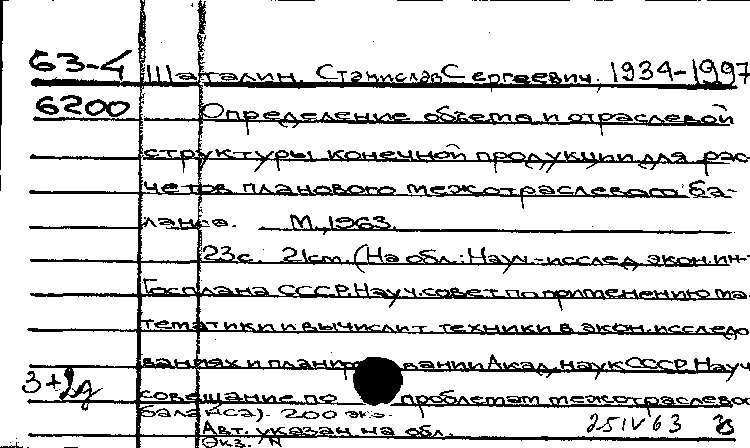 63-4 Шаталин, Станислав Сергеевич, 1934-1997
6200 Определение объема и отраслевой
структуры конечной продукции для рас
четов планового межотраслевого ба-
ланса. М., 1963.
23с. 21см. (На обл.: Науч.-исслед. экон. ин-
Госплана СССР. Науч. совет по применению ма
тематики и вычислит. техники в экон. исследо
ваниях и планировании Акад. наук СССР. Науч
3+1д совещание по проблемам межотраслево
баланса). 200 экз.
Авт. указан на обл. 25 IV 63
Экз. N